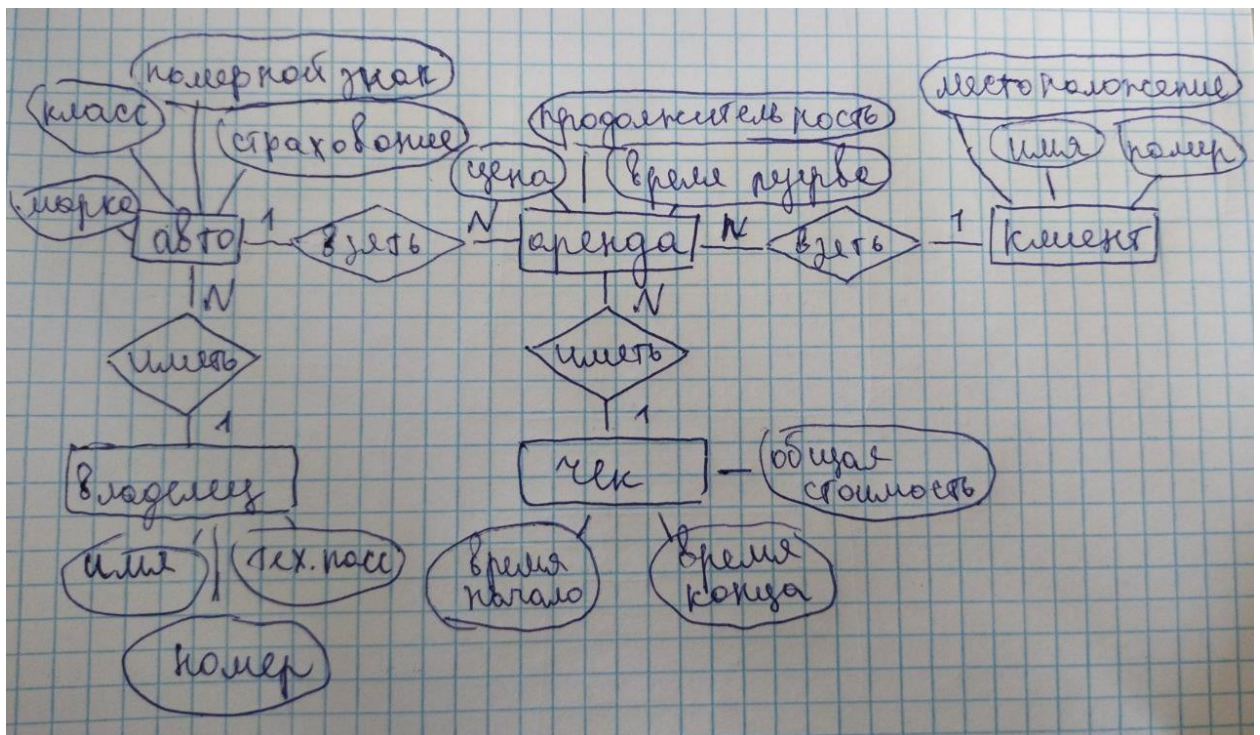 номерной знак
класс
страхование
марка
авто
1
взять
N
продолжительность
цена
время резерва
аренда
N
взять
1
местоположение
имя
номер
клиент
N
иметь
1
владелец
имя
тех. пасс
номер
N
иметь
1
чек
общая
стоимость
время
начало
время
конца